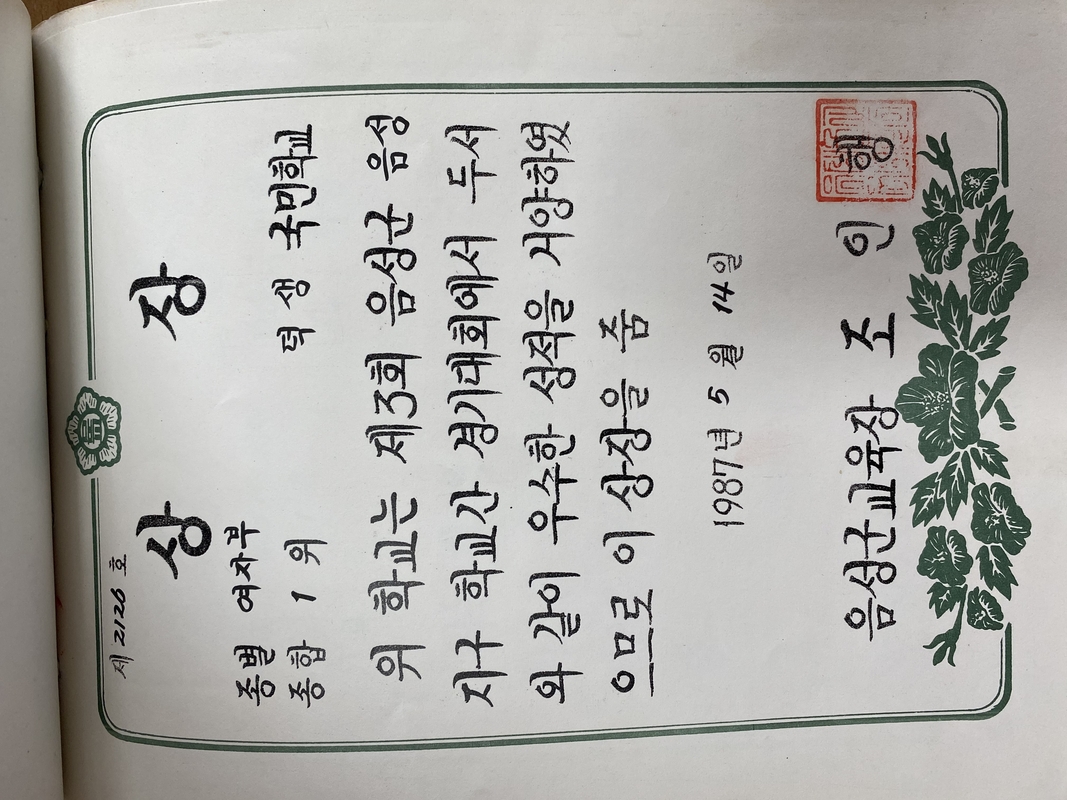 제 2126 호
상 장
종별 여자부
종합 1 위
덕생 국민학교
위 학교는 제3회 음성군 음성
지구 학교간 경기대회에서 두서
와 같이 우수한 성적을 거양하였
으므로 이 상장을 줌
1987년 5월 14일
음성군교육장 조 인 행